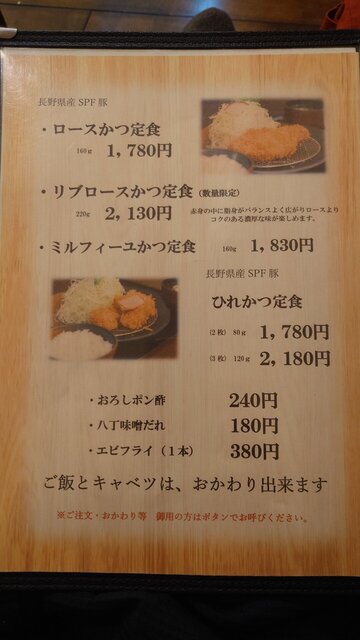 長野県産 SPF 豚
・ロースかつ定食
160g 1,780円
・リブロースかつ定食（数量限定）
220g 2,130円 赤身の中に脂身がバランスよく広がりロースより
コクのある濃厚な味が楽しめます。
・ミルフィーユかつ定食 160g 1,830円
長野県産 SPF 豚
ひれかつ定食
(2枚) 80g 1,780円
(3枚) 120g 2,180円
・おろしポン酢 240円
・八丁味噌だれ 180円
・エビフライ（1本） 380円
ご飯とキャベツは、おかわり出来ます
※ご注文・おかわり等 御用の方はボタンでお呼びください。